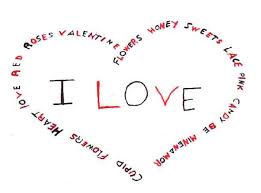 FLOWERS HONEY SWEETS LACE PINK CANDY BE MINE AMOR
CUPID FLOWERS HEART LOVE RED ROSES VALENTINE
I LOVE